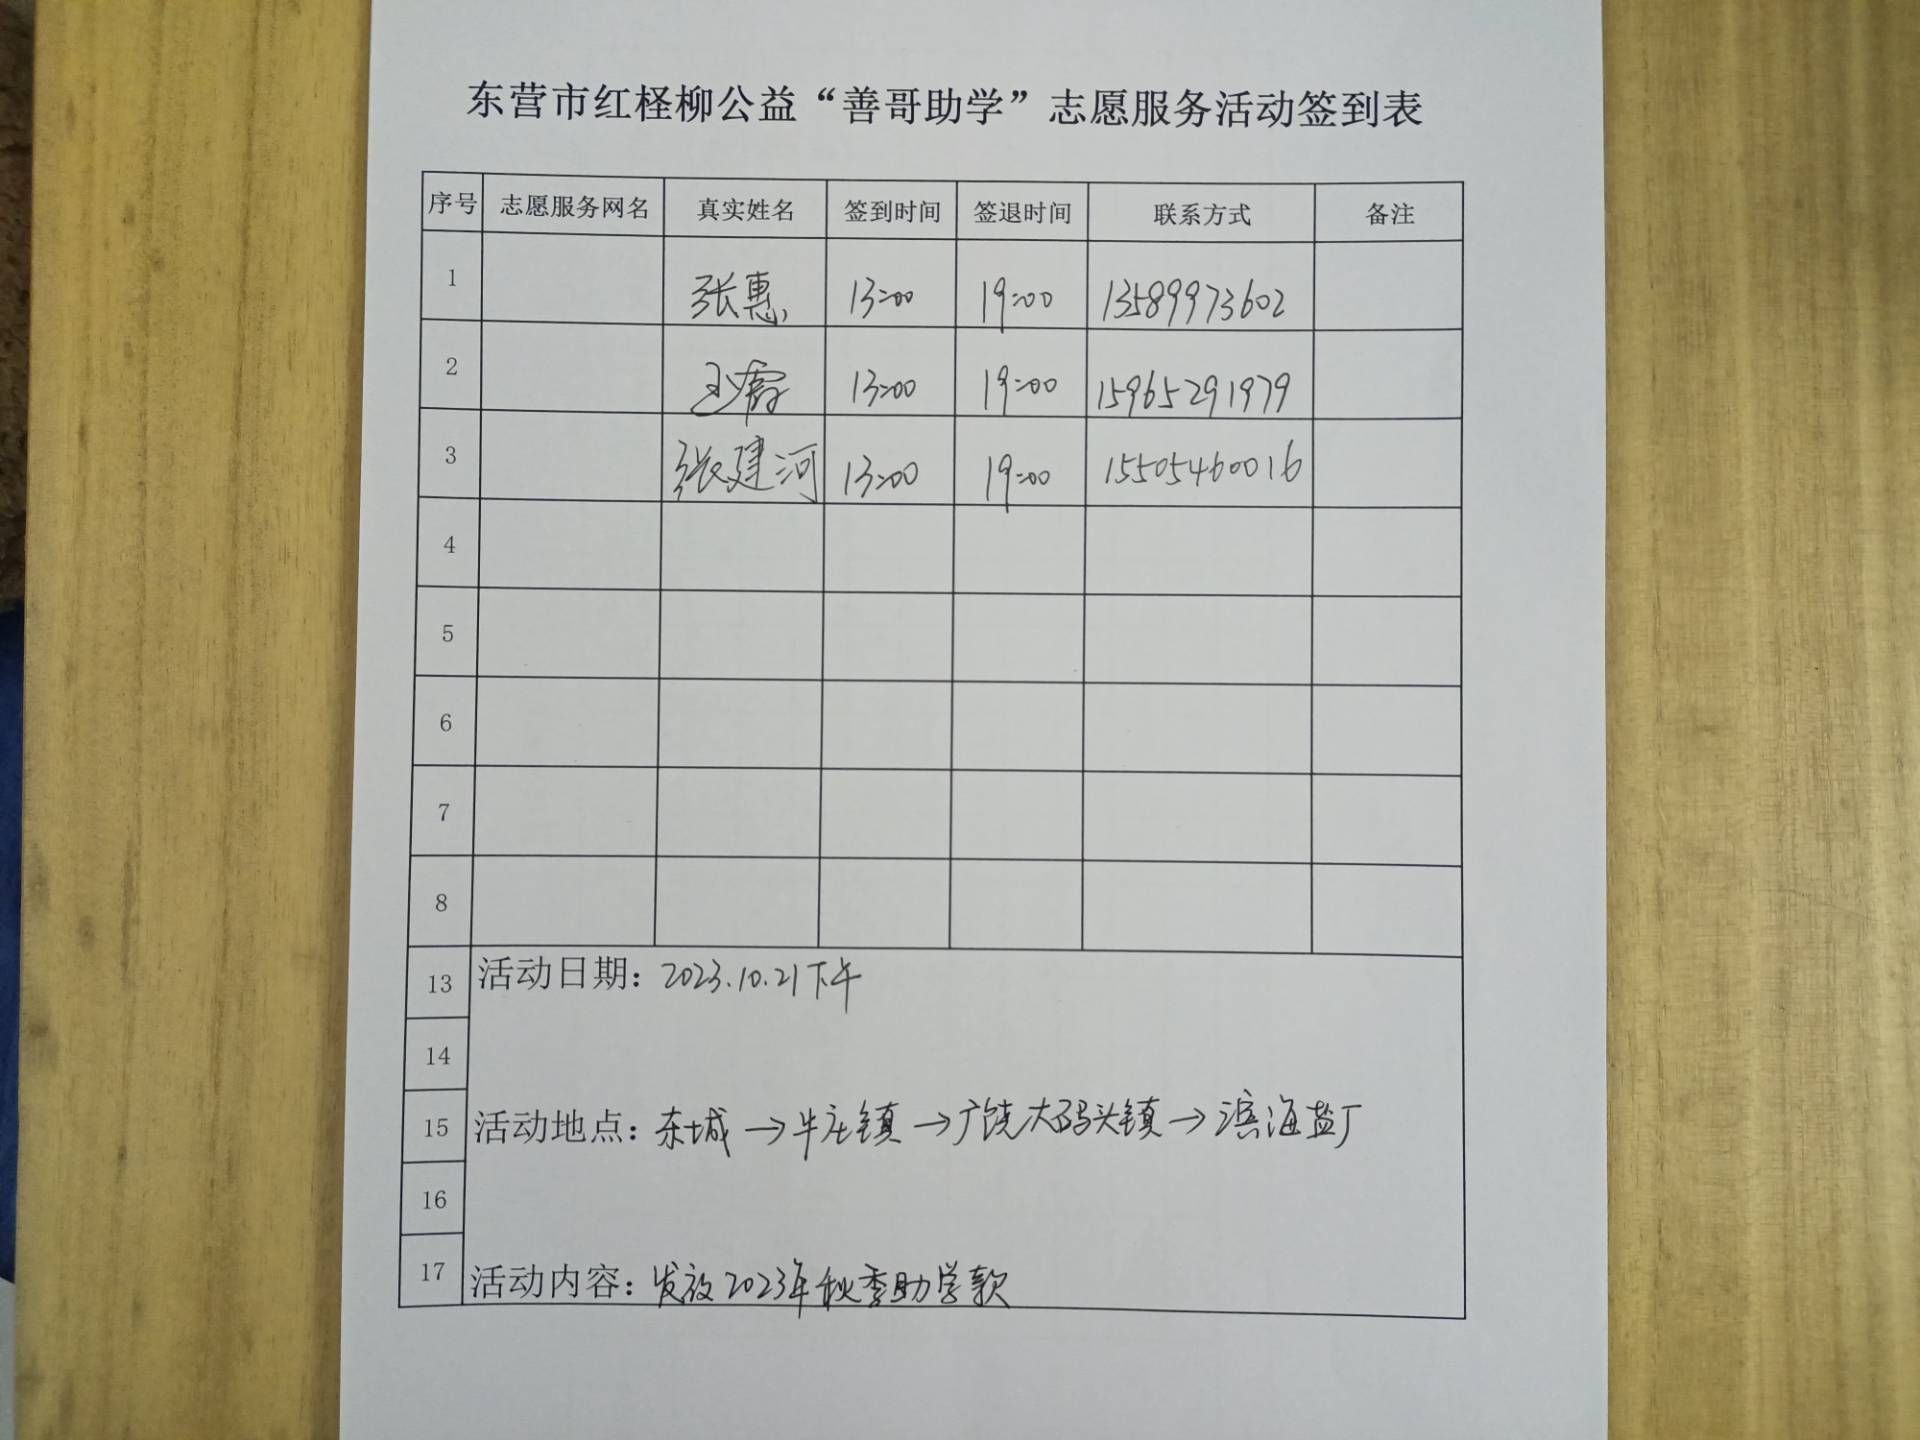 东营市红柽柳公益“善哥助学”志愿服务活动签到表
序号 志愿服务网名 真实姓名 签到时间 签退时间 联系方式 备注
1 张惠 13:00 19:00 13589973602
2 王霞 13:00 19:00 15965291979
3 张建河 13:00 19:00 15505460016
4
5
6
7
8
13 活动日期：2023.10.21下午
14
15 活动地点：东城→牛庄镇→广饶大码头镇→滨海盐厂
16
17 活动内容：发放2023年秋季助学款